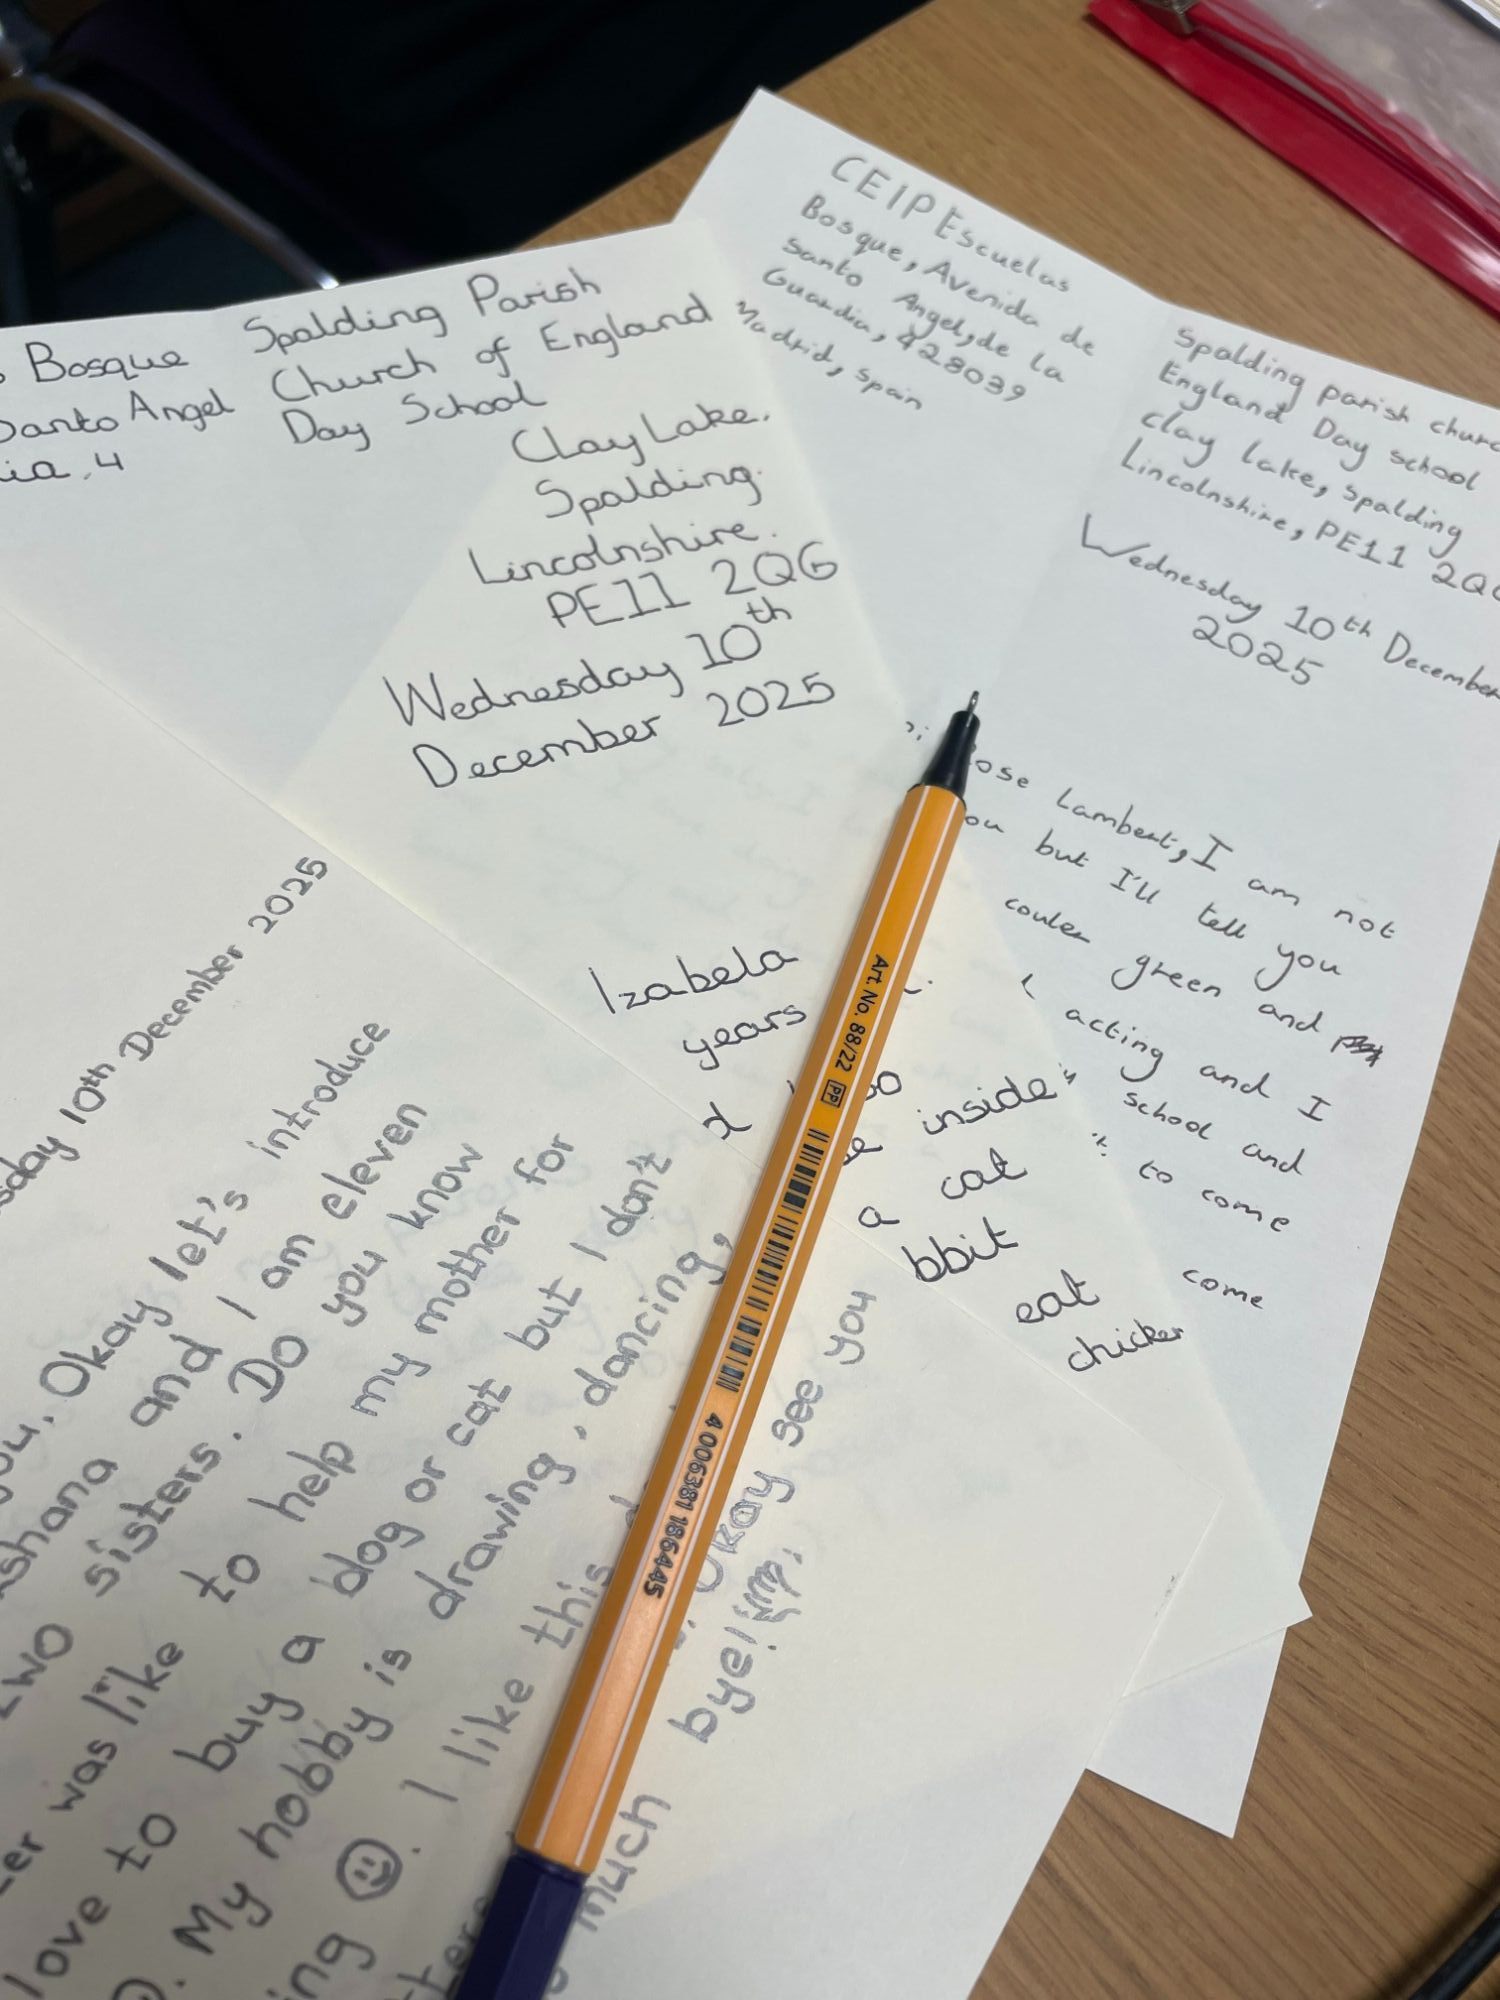 CEIP Escuelas
Bosque, Avenida de
Santo Angel, de la
Guardia, 428039
Madrid, Spain
Spalding parish churc
England Day school
clay lake, Spalding
Lincolnshire, PE11 2Q
Wednesday 10th December
2025
ose Lambert, I am not
ou but I'll tell you
couler green and
acting and I
school and
to come
come
Bosque
Santo Angel
ia, 4
Spalding Parish
Church of England
Day School
Clay Lake.
Spalding.
Lincolnshire.
PE11 2QG
Wednesday 10th
December 2025
Izabela
years
inside
a cat
bbit
eat
chicken
sday 10th December 2025
ou. Okay let's introduce
shana and I am eleven
two sisters. Do you know
er was like to help my mother for
love to buy a dog or cat but I don't
. My hobby is drawing, dancing,
ing ☺. I like this
Okay see you
much bye!
Art. No. 88/22 PP
4 006381 186445